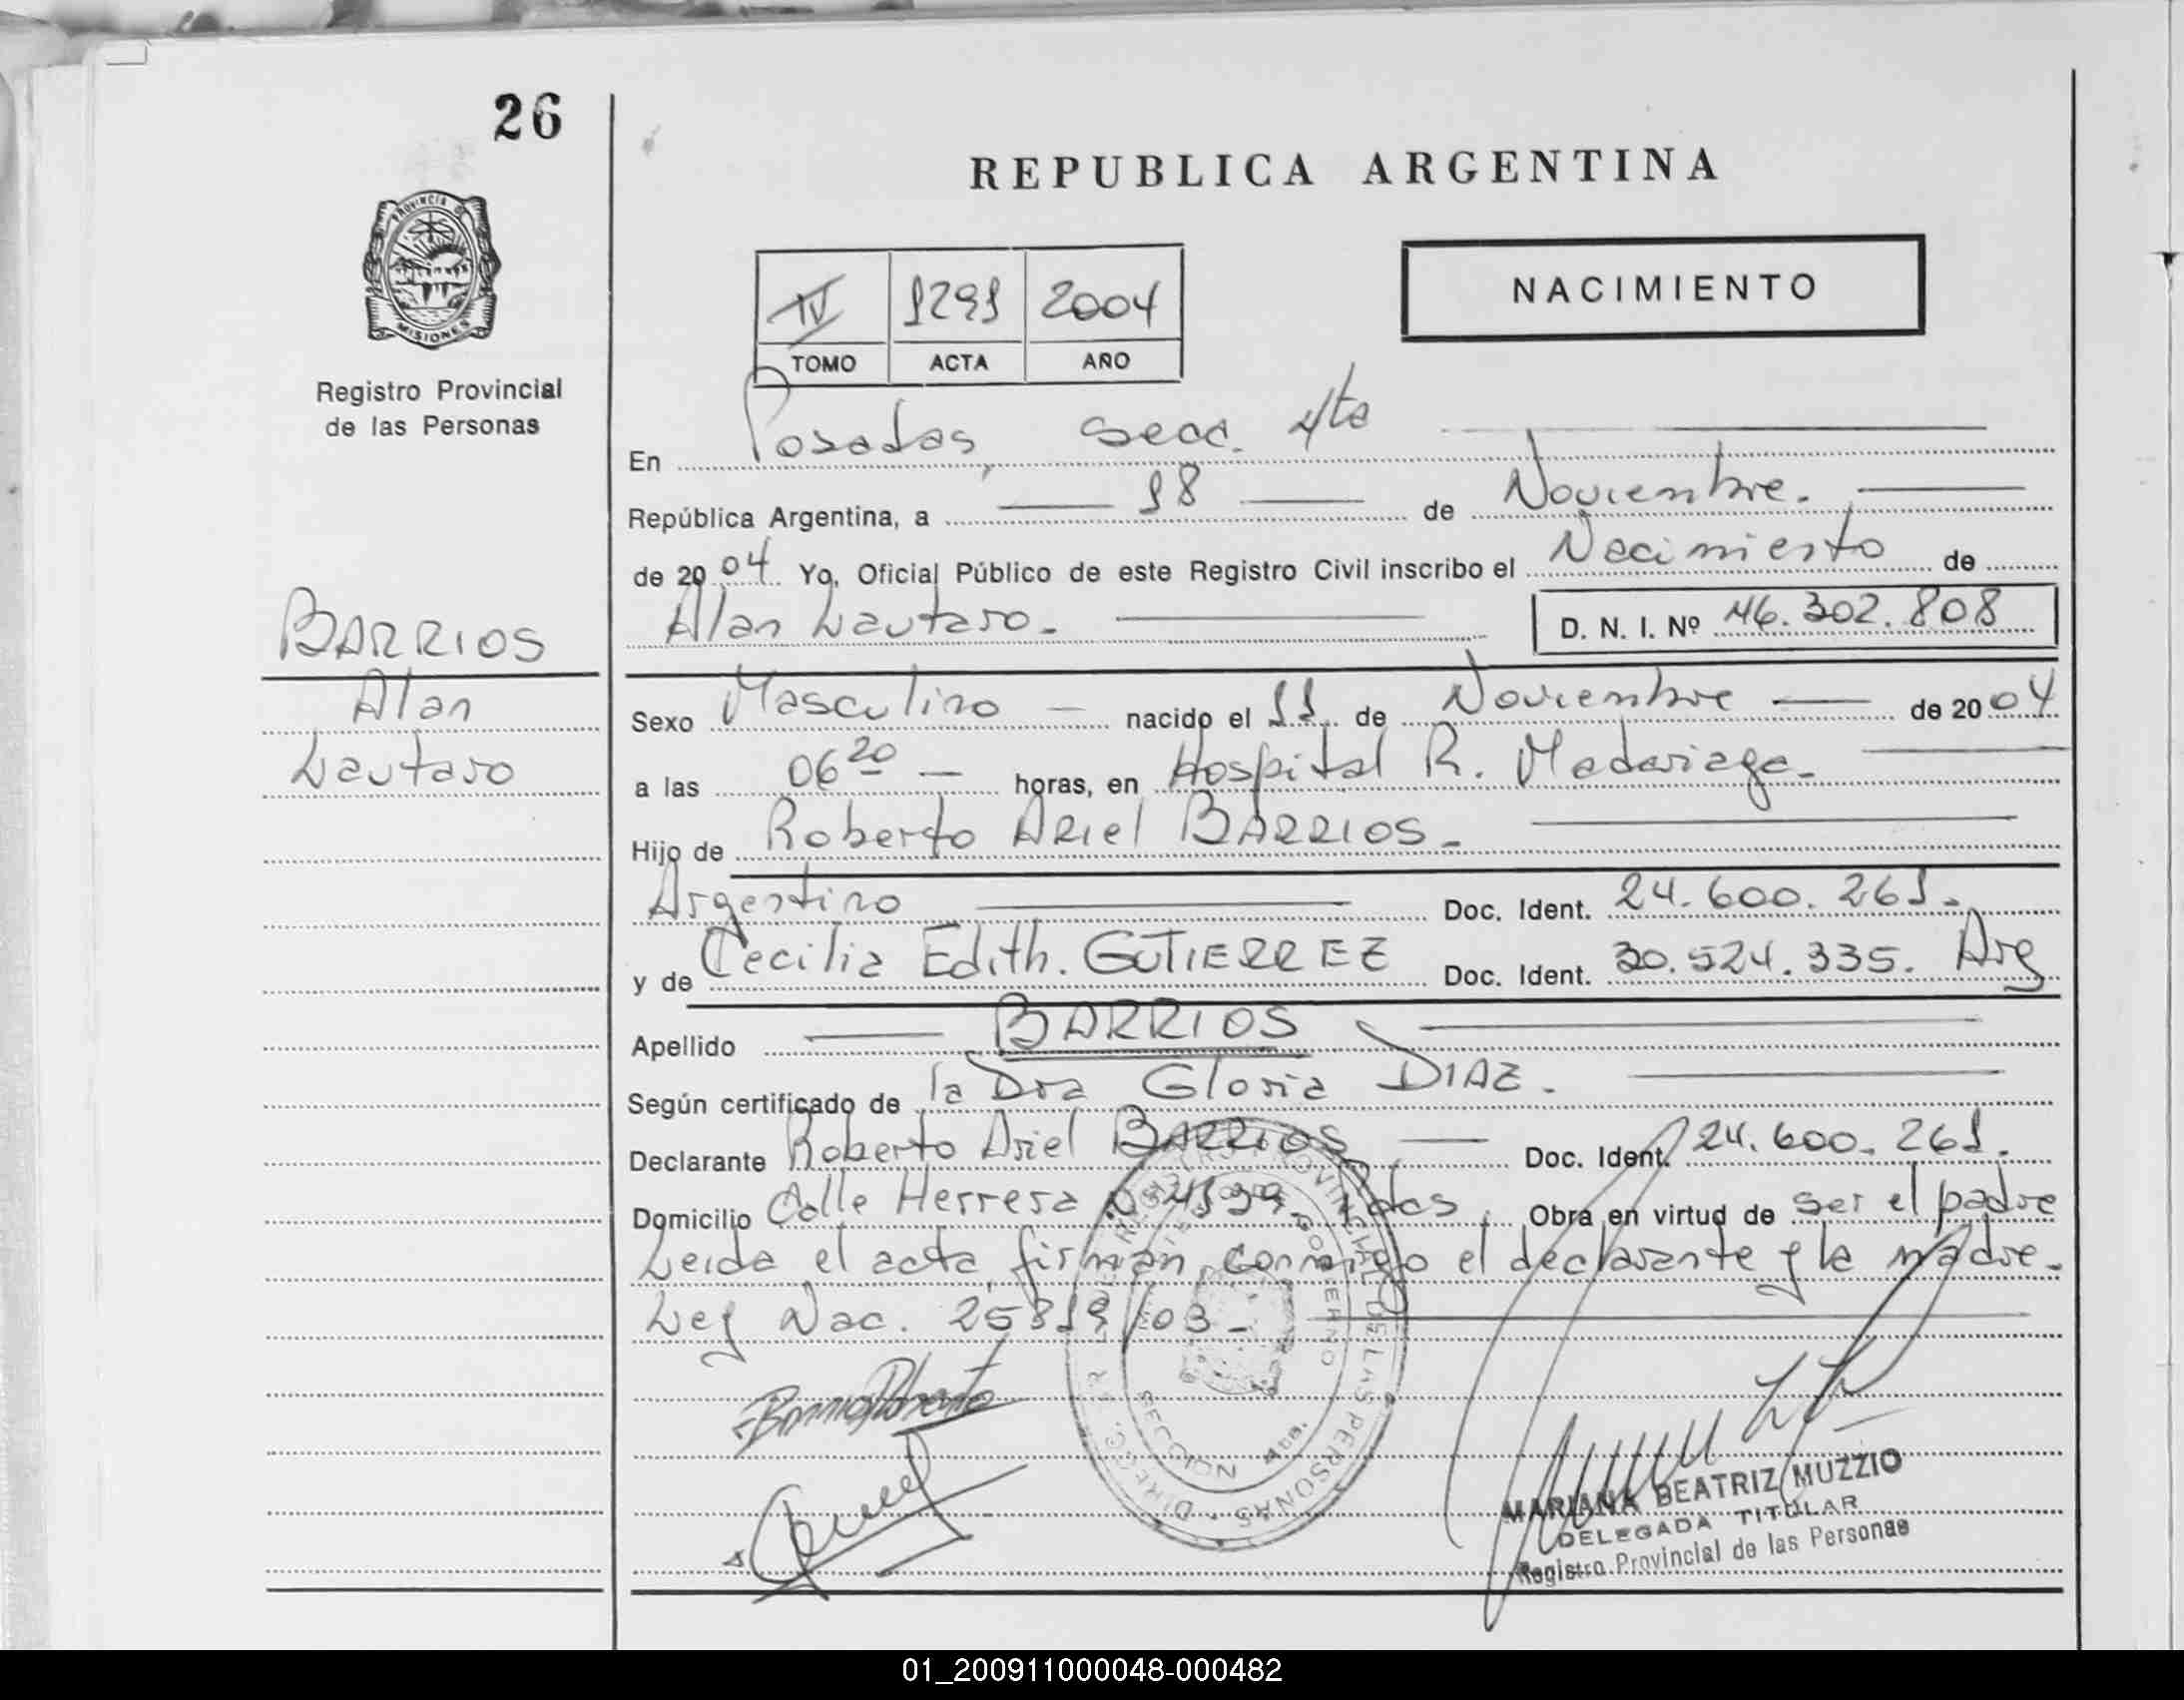 26
REPUBLICA ARGENTINA
PROVINCIA DE
MISIONES
Registro Provincial
de las Personas
IV 1291 2004
TOMO ACTA AÑO
NACIMIENTO
En Posadas, Secc. 4ta
República Argentina, a 18 de Noviembre.
de 2004 Yo, Oficial Público de este Registro Civil inscribo el Nacimiento de
Alan Lautaro. D. N. I. Nº 46.302.808
BARRIOS
Alan
Lautaro
Sexo Masculino nacido el 11 de Noviembre de 2004
a las 06 20 horas, en Hospital R. Madariaga.
Hijo de Roberto Ariel BARRIOS.
Argentino Doc. Ident. 24.600.261.
y de Cecilia Edith. GUTIERREZ Doc. Ident. 30.524.335. Arg
Apellido BARRIOS
Según certificado de la Dra Gloria DIAZ.
Declarante Roberto Ariel BARRIOS Doc. Ident. 24.600.261.
Domicilio Calle Herrera Nº 4139. Pdas Obra en virtud de ser el padre
Leida el acta, firman conmigo el declarante y la madre.
Ley Nac. 25819/03.
Barrios Roberto
REGISTRO PROVINCIAL DE LAS PERSONAS
GOBIERNO
SECCION 4ta.
MARIANA BEATRIZ MUZZIO
DELEGADA TITULAR
Registro Provincial de las Personas
01_200911000048-000482